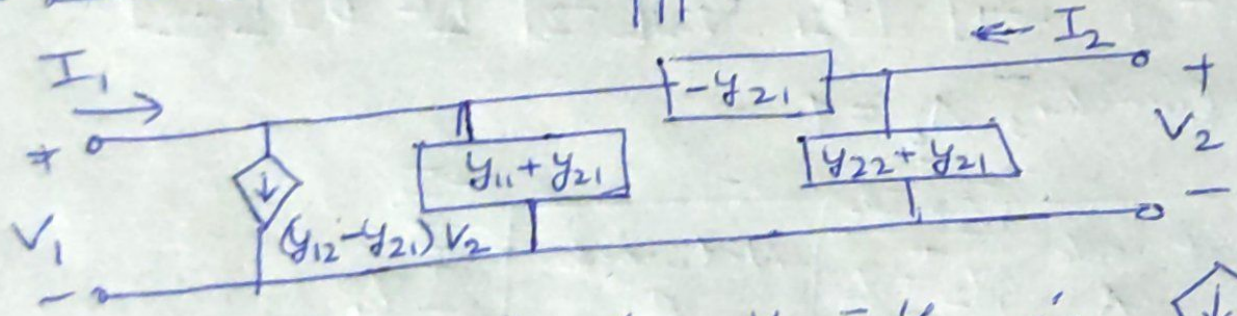 ← I₂
I₁
→
-y₂₁
+
+
V₂
y₁₁ + y₂₁
y₂₂ + y₂₁
V₁
(y₁₂-y₂₁) V₂
-
-